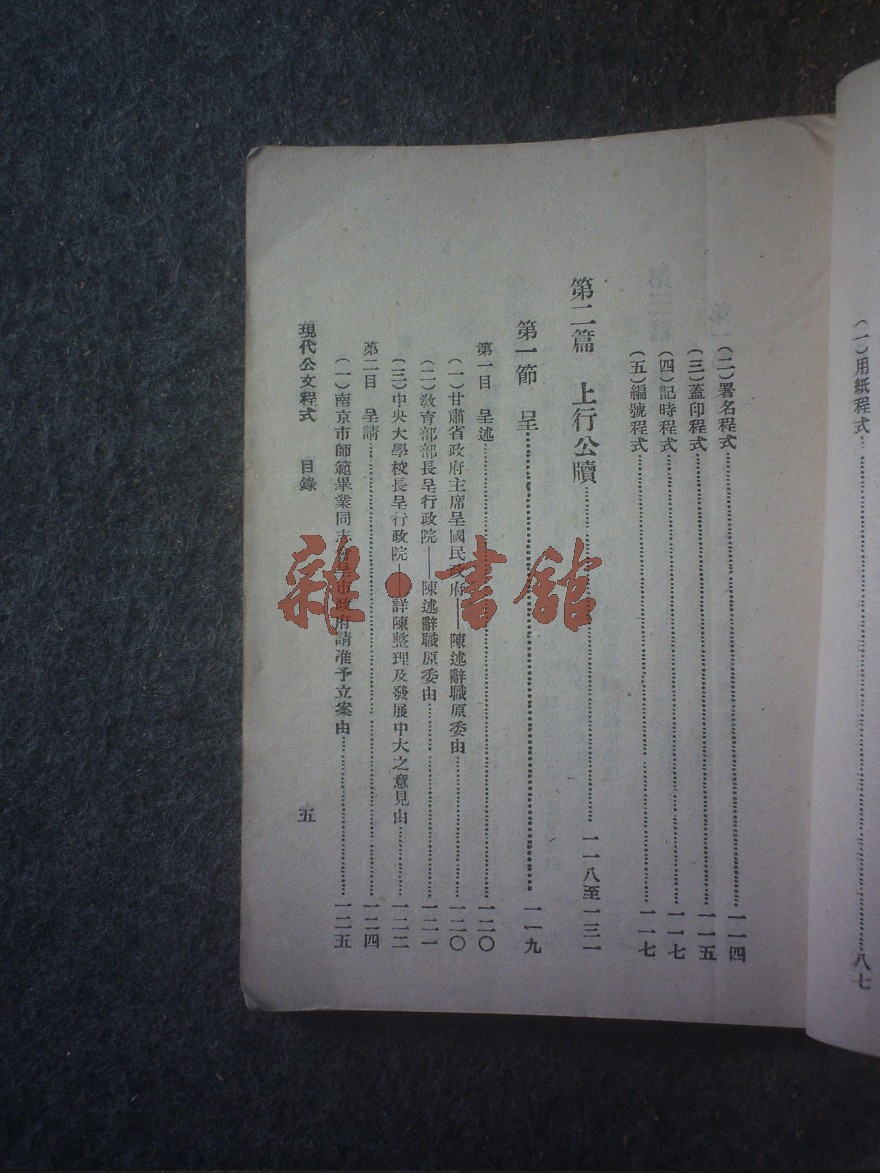 (一)用紙程式……八七
(二)署名程式……一一四
(三)蓋印程式……一一五
(四)記時程式……一一七
(五)編號程式……一一七
第二篇 上行公牘……一一八至一三一
第一節 呈……一一九
第一目 呈述……一二〇
(一)甘肅省政府主席呈國民政府——陳述辭職原委由……一二〇
(二)教育部部長呈行政院——陳述辭職原委由……一二一
(三)中央大學校長呈行政院——詳陳整理及發展中大之意見由……一二二
第二目 呈請……一二四
(一)南京市師範畢業同志會呈市政府請准予立案由……一二五
現代公文程式 目錄 五
雜·書館